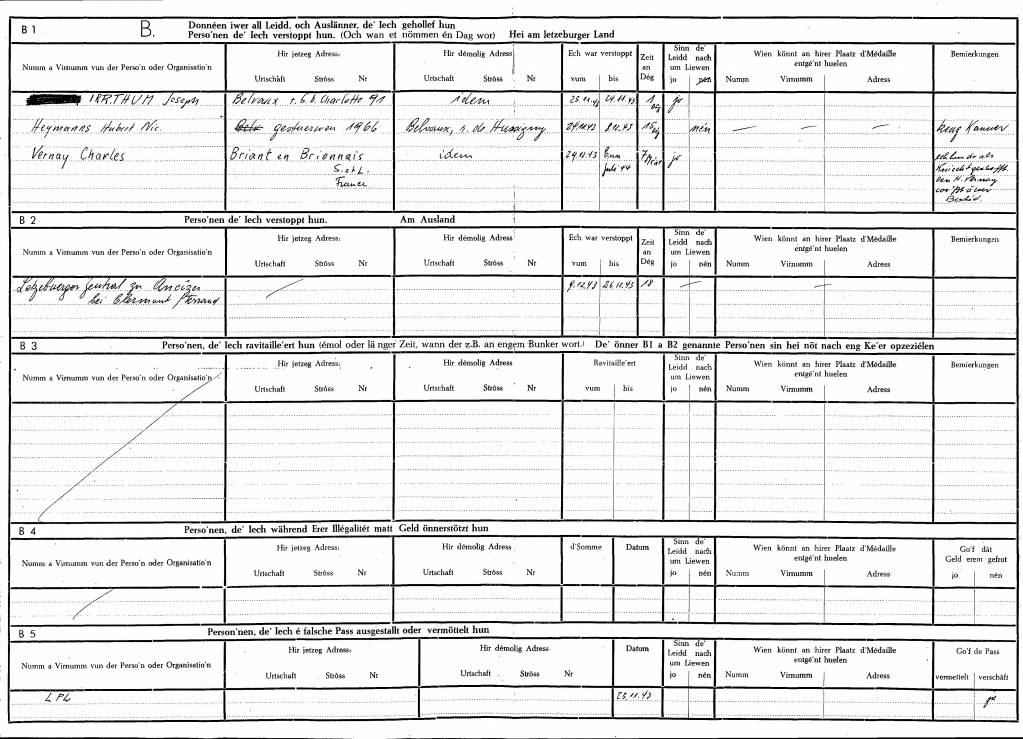 B 1 B. Donnéen iwer all Leidd, och Auslänner, de' Iech gehollef hun
Perso'nen de' Iech verstoppt hun. (Och wan et nömmen én Dag wor) Hei am letzeburger Land
Numm a Virnumm vun der Perso'n oder Organisatio'n
Hir jetzeg Adress: Hir démolig Adress Ech war verstoppt Zeit an Dég Sinn de' Leidd nach um Liewen Wien könnt an hirer Plaatz d'Médaille entgé'nt huelen Bemierkungen
Urtschaft Ströss Nr Urtschaft Ströss Nr vum bis jo nén Numm Virnumm Adress
IRRTHUM Joseph Belvaux r. G. D. Charlotte 91 idem 23.11.43 24.11.43 1 Dg jo
Heymanns Hubert Nic. gestuerwen 1966 Belvaux, r. de Hussigny 24.11.43 8.12.43 15 Dg nén — — — keng Kanner
Vernay Charles Briant en Brionnais idem 29.12.43 Enn 7 jo ech hun do als
S. et L. Juli 44
France
B 2 Perso'nen de' Iech verstoppt hun. Am Ausland
Numm a Virnumm vun der Perso'n oder Organisatio'n
Hir jetzeg Adress: Hir démolig Adress Ech war verstoppt Zeit an Dég Sinn de' Leidd nach um Liewen Wien könnt an hirer Plaatz d'Médaille entgé'nt huelen Bemierkungen
Urtschaft Ströss Nr Urtschaft Ströss Nr vum bis jo nén Numm Virnumm Adress
Letzebuerger Zentral zu Ancizes 9.12.43 26.12.43 18 — —
bei Clermont Ferrand
B 3 Perso'nen, de' Iech ravitaille'ert hun (émol oder länger Zeit, wann der z.B. an engem Bunker wort.) De' önner B1 a B2 genannte Perso'nen sin hei nöt nach eng Ke'er opzeziélen
Numm a Virnumm vun der Perso'n oder Organisatio'n
Hir jetzeg Adress: Hir démolig Adress Ravitaille'ert Sinn de' Leidd nach um Liewen Wien könnt an hirer Plaatz d'Médaille entgé'nt huelen Bemierkungen
Urtschaft Ströss Nr Urtschaft Ströss Nr vum bis jo nén Numm Virnumm Adress
B 4 Perso'nen, de' Iech während Erer Illégalitét matt Geld önnerstötzt hun
Numm a Virnumm vun der Perso'n oder Organisatio'n
Hir jetzeg Adress: Hir démolig Adress d'Somme Datum Sinn de' Leidd nach um Liewen Wien könnt an hirer Plaatz d'Médaille entgé'nt huelen Go'f dät Geld erem gefrot
Urtschaft Ströss Nr Urtschaft Ströss Nr jo nén Numm Virnumm Adress jo nén
B 5 Person'nen, de' Iech é falsche Pass ausgestallt oder vermöttelt hun
Numm a Virnumm vun der Perso'n oder Organisatio'n
Hir jetzeg Adress: Hir démolig Adress Datum Sinn de' Leidd nach um Liewen Wien könnt an hirer Plaatz d'Médaille entgé'nt huelen Go'f de Pass
Urtschaft Ströss Nr Urtschaft Ströss Nr jo nén Numm Virnumm Adress vermettelt verschäft
LPL 23.11.43